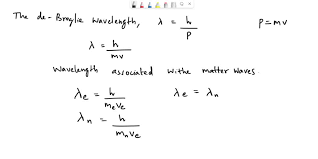 The de-Broglie wavelength, λ = h/p p=mv
λ = h/mv
Wavelength associated withe matter waves.
λe = h/meve λe = λn
λn = h/mnve